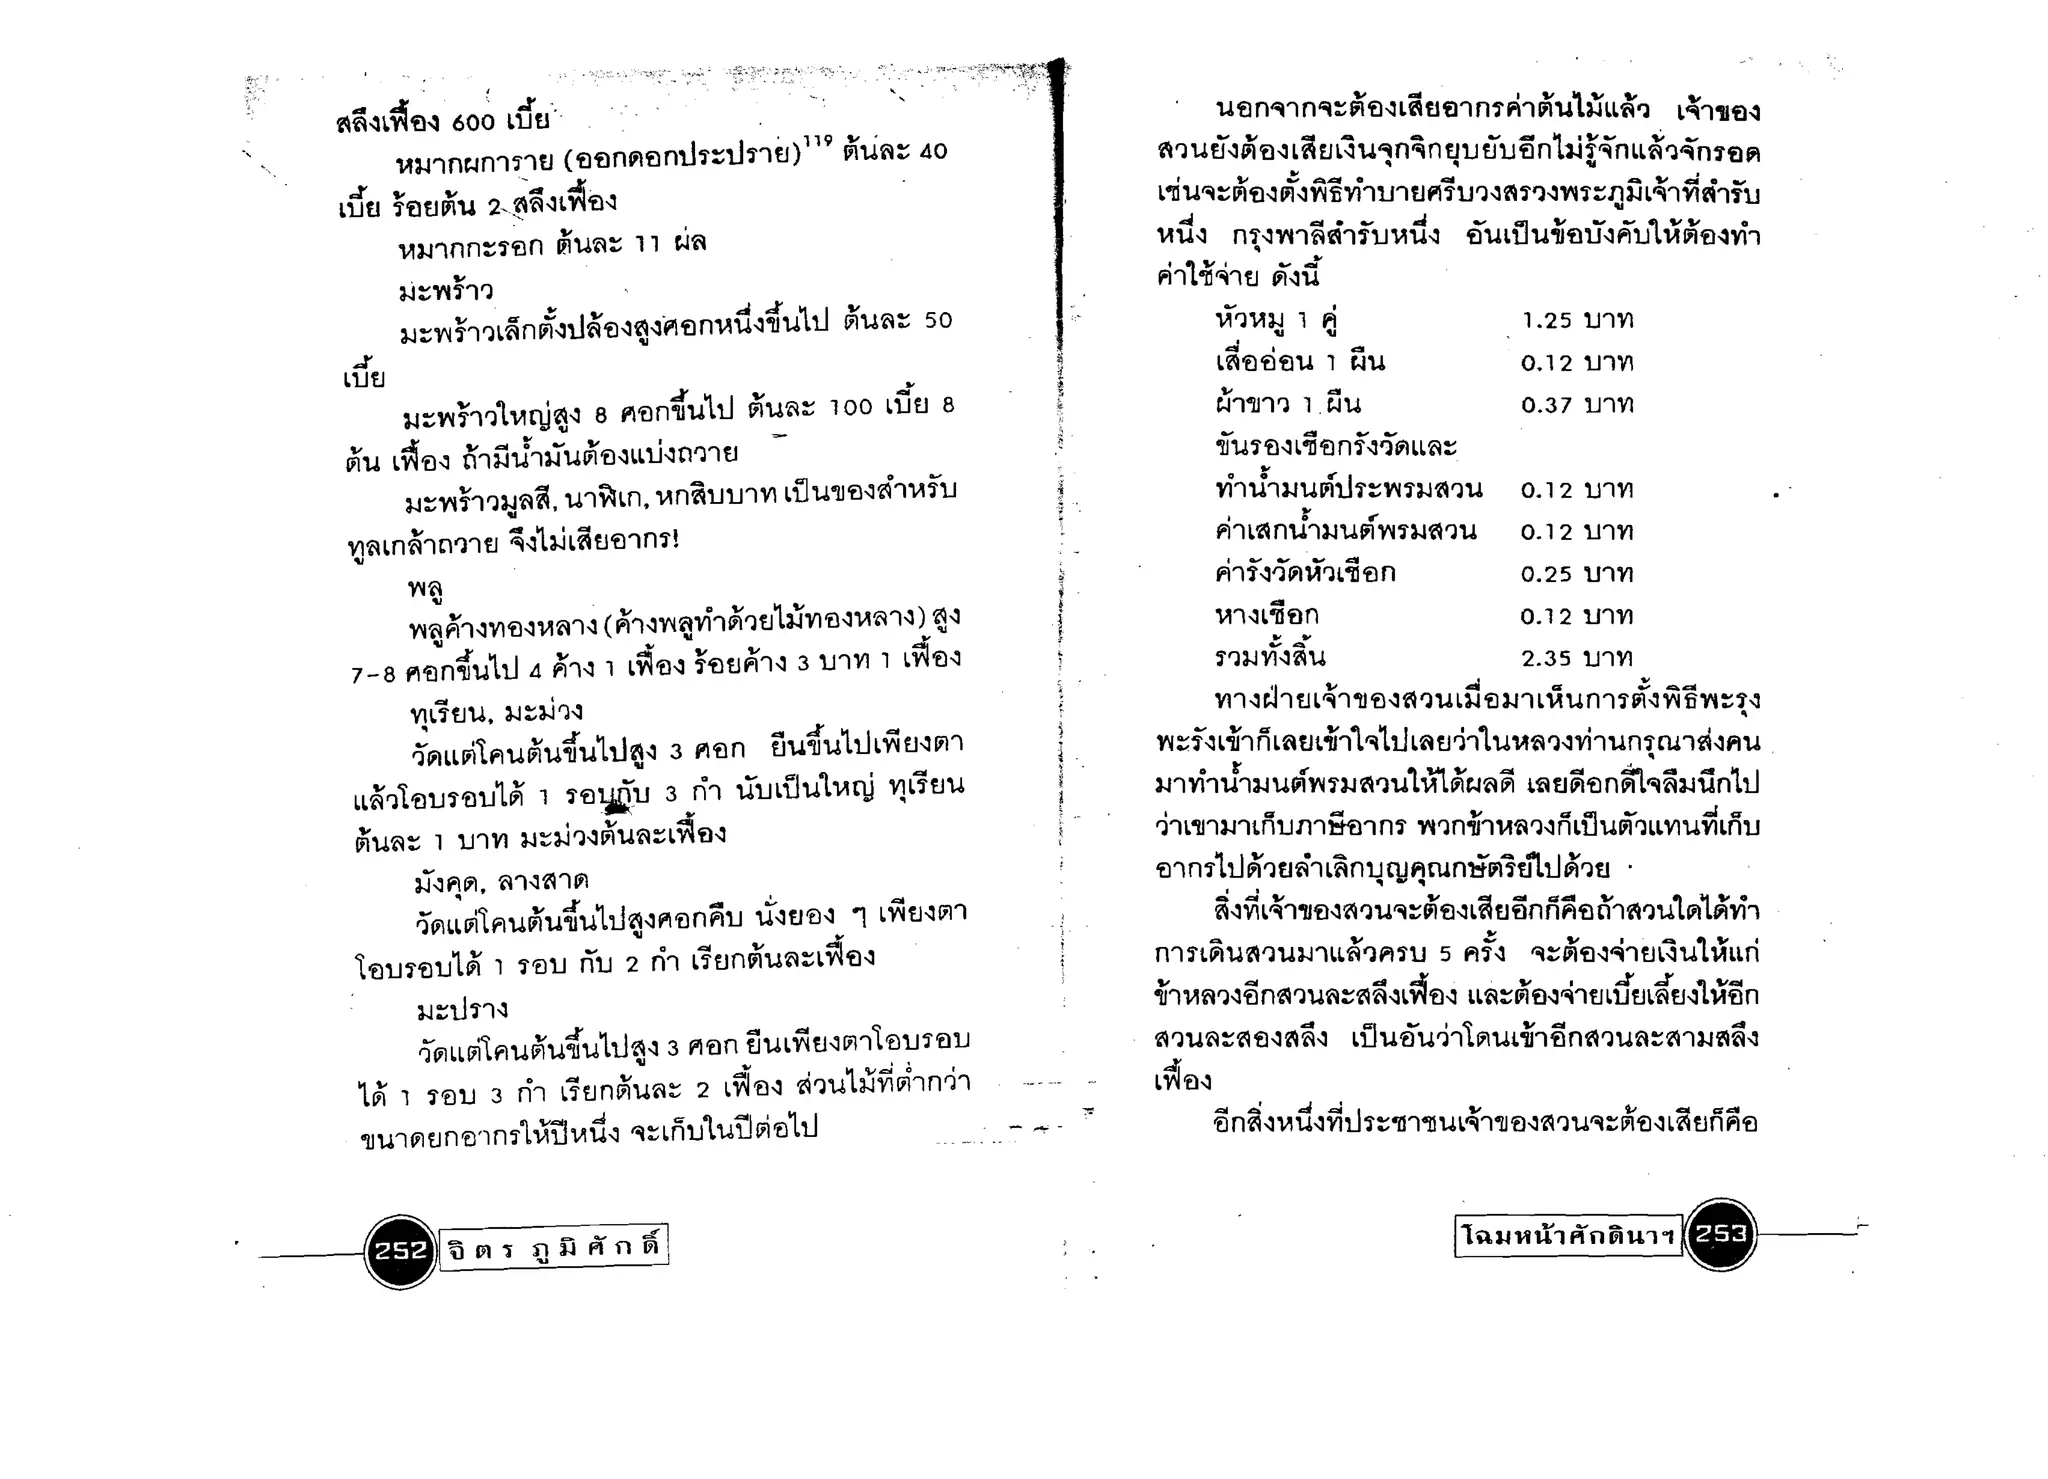 สลึงเฟื้อง 600 เบี้ย
หมากผการาย (ออกดอกประปราย)119 ต้นละ 40
เบี้ย ร้อยต้น 2 สลึงเฟื้อง
หมากกะรอก ต้นละ 11 ผล
มะพร้าว
มะพร้าวเล็กตั้งปล้องสูงศอกหนึ่งขึ้นไป ต้นละ 50
เบี้ย
มะพร้าวใหญ่สูง 8 ศอกขึ้นไป ต้นละ 100 เบี้ย 8
ต้น เฟื้อง ถ้ามีน้ำมันต้องแบ่งถวาย
มะพร้าวมูลสี, นาฬิเก, หกสิบบาท เป็นของสำหรับ
ทูลเกล้าถวาย จึงไม่เสียอากร!
พลู
พลูค้างทองหลาง (ค้างพลูทำด้วยไม้ทองหลาง) สูง
7-8 ศอกขึ้นไป 4 ค้าง 1 เฟื้อง ร้อยค้าง 3 บาท 1 เฟื้อง
ทุเรียน, มะม่วง
วัดแต่โคนต้นขึ้นไปสูง 3 ศอก ยืนขึ้นไปเพียงตา
แล้วโอบรอบได้ 1 รอบกับ 3 กำ นับเป็นใหญ่ ทุเรียน
ต้นละ 1 บาท มะม่วงต้นละเฟื้อง
มังคุด, ลางสาด
วัดแต่โคนต้นขึ้นไปสูงศอกคืบ นั่งยอง ๆ เพียงตา
โอบรอบได้ 1 รอบ กับ 2 กำ เรียกต้นละเฟื้อง
มะปราง
วัดแต่โคนต้นขึ้นไปสูง 3 ศอก ยืนเพียงตาโอบรอบ
ได้ 1 รอบ 3 กำ เรียกต้นละ 2 เฟื้อง ส่วนไม้ที่ต่ำกว่า
ขนาดยกอากรให้ปีหนึ่ง จะเก็บในปีต่อไป
252 จิตร ภูมิศักดิ์
นอกจากจะต้องเสียอากรค่าต้นไม้แล้ว เจ้าของ
สวนยังต้องเสียเงินจุกจิกยุบยับอีกไม่รู้จักแล้วจักรอด
เช่นจะต้องตั้งพิธีทำบายศรีบวงสรวงพระภูมิเจ้าที่สำรับ
หนึ่ง กรุงพาลีสำรับหนึ่ง อันเป็นข้อบังคับให้ต้องทำ
ค่าใช้จ่าย ดังนี้
หัวหมู 1 คู่ 1.25 บาท
เสื่ออ่อน 1 ผืน 0.12 บาท
ผ้าขาว 1 ผืน 0.37 บาท
ขันรองเชือกรังวัดและ
ทำน้ำมนต์ประพรมสวน 0.12 บาท
ค่าเสกน้ำมนต์พรมสวน 0.12 บาท
ค่ารังวัดหัวเชือก 0.25 บาท
หางเชือก 0.12 บาท
รวมทั้งสิ้น 2.35 บาท
ทางฝ่ายเจ้าของสวนเมื่อมาเห็นการตั้งพิธีพะรุง
พะรังเข้าก็เลยเข้าใจไปเลยว่าในหลวงท่านกรุณาส่งคน
มาทำน้ำมนต์พรมสวนให้ได้ผลดี เลยดีอกดีใจลืมนึกไป
ว่าเขามาเก็บภาษีอากร พวกข้าหลวงก็เป็นตัวแทนที่เก็บ
อากรไปด้วยลำเลิกบุญคุณกษัตริย์ไปด้วย
สิ่งที่เจ้าของสวนจะต้องเสียอีกก็คือถ้าสวนใดได้ทำ
การเดินสวนมาแล้วครบ 5 ครั้ง จะต้องจ่ายเงินให้แก่
ข้าหลวงอีกสวนละสลึงเฟื้อง และต้องจ่ายเบี้ยเลี้ยงให้อีก
สวนละสองสลึง เป็นอันว่าโดนเข้าอีกสวนละสามสลึง
เฟื้อง
อีกสิ่งหนึ่งที่ประชาชนเจ้าของสวนจะต้องเสียก็คือ
โฉมหน้าศักดินาฯ 253